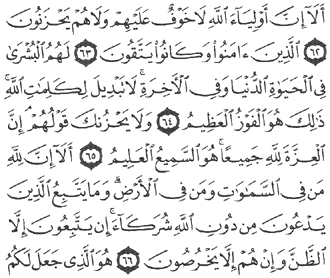 أَلَآ إِنَّ أَوْلِيَآءَ ٱللَّهِ لَا خَوْفٌ عَلَيْهِمْ وَلَا هُمْ يَحْزَنُونَ
٦٢ ٱلَّذِينَ ءَامَنُوا۟ وَكَانُوا۟ يَتَّقُونَ ٦٣ لَهُمُ ٱلْبُشْرَىٰ
فِى ٱلْحَيَوٰةِ ٱلدُّنْيَا وَفِى ٱلْـَٔاخِرَةِ ۚ لَا تَبْدِيلَ لِكَلِمَـٰتِ ٱللَّهِ ۚ
ذَٰلِكَ هُوَ ٱلْفَوْزُ ٱلْعَظِيمُ ٦٤ وَلَا يَحْزُنكَ قَوْلُهُمْ ۘ إِنَّ
ٱلْعِزَّةَ لِلَّهِ جَمِيعًا ۚ هُوَ ٱلسَّمِيعُ ٱلْعَلِيمُ ٦٥ أَلَآ إِنَّ لِلَّهِ
مَن فِى ٱلسَّمَـٰوَٰتِ وَمَن فِى ٱلْأَرْضِ ۗ وَمَا يَتَّبِعُ ٱلَّذِينَ
يَدْعُونَ مِن دُونِ ٱللَّهِ شُرَكَآءَ ۚ إِن يَتَّبِعُونَ إِلَّا
ٱلظَّنَّ وَإِنْ هُمْ إِلَّا يَخْرُصُونَ ٦٦ هُوَ ٱلَّذِى جَعَلَ لَكُمُ